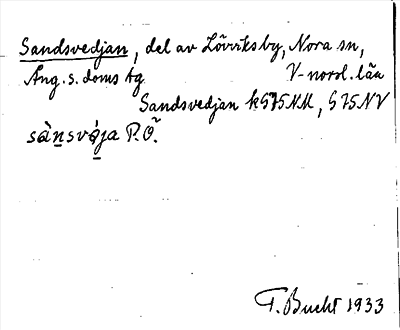 Sandsvedjan, del av Lövviks by, Nora sn,
Ång. s. doms ag V-norrl. län
Sandsvedjan k575NM, 575NV
sànsvǝ́ja P.Ö.
T. Bucht 1933